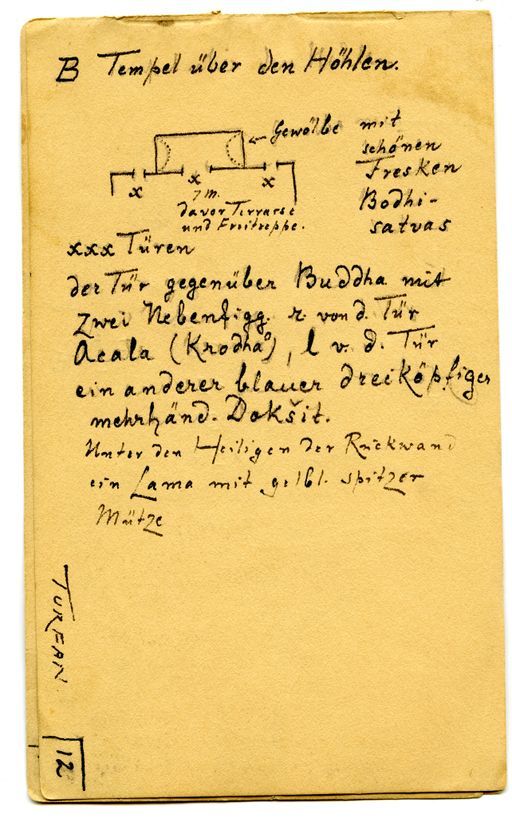 B Tempel über den Höhlen.
Gewölbe mit
schönen
Fresken
Bodhi-
satvas
x x x
7 m.
davor Terrasse
und Freitreppe.
xxx Türen
der Tür gegenüber Buddha mit
zwei Nebenfigg. r. von d. Tür
Acala (Krodha), l v. d. Tür
ein anderer blauer dreiköpfiger
mehrhänd. Dokšit.
Unter den Heiligen der Rückwand
ein Lama mit gelbl. spitzer
Mütze
TURFAN.
12